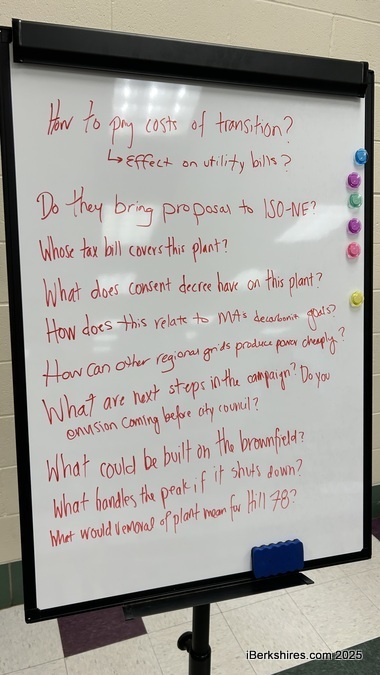 How to pay costs of transition?
↳ Effect on utility bills?
Do they bring proposal to ISO-NE?
Whose tax bill covers this plant?
What does consent decree have on this plant?
How does this relate to MA's decarbonit goals?
How can other regional grids produce power cheaply?
What are next steps in the campaign? Do you
envision coming before city council?
What could be built on the brownfield?
What handles the peak if it shuts down?
What would removal of plant mean for Hill 78?
iBerkshires.com 2025